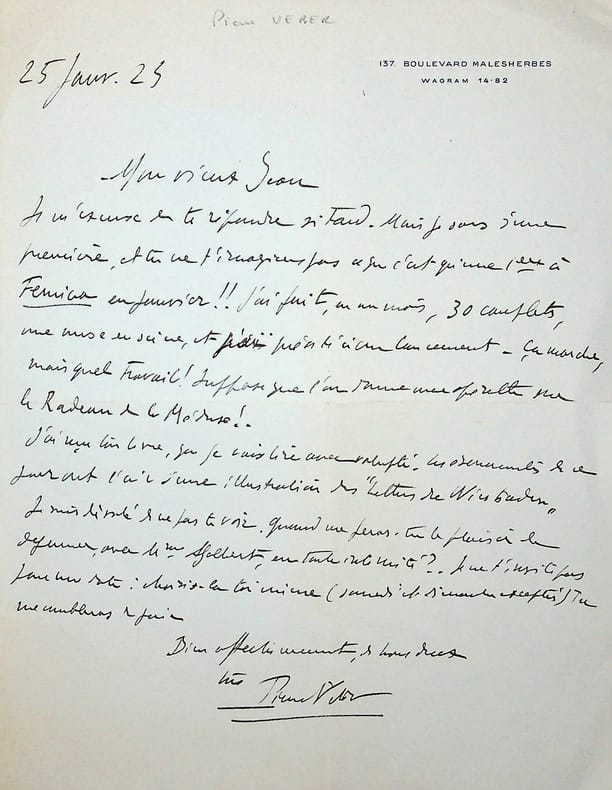 Pierre VEBER
137. BOULEVARD MALESHERBES
WAGRAM 14-82
25 Janv. 23
Mon vieux Jean
Je m'excuse de te répondre si tard. Mais je sors d'une
première, et tu ne t'imagines pas ce que c'est qu'une 1ère à
Femina en janvier!! J'ai fait, en un mois, 30 couplets,
une mise en scène, et présidé à un lancement - Ça marche,
mais quel travail! Suppose que l'on donne une opérette sur
le Radeau de la Méduse!.
J'ai reçu ton livre, que je vais lire avec volupté. Les de ce
jour ont l'air d'une illustration des "Lettres de Wiesbaden"
Je suis désolé de ne pas te voir. Quand me feras-tu le plaisir de
déjeuner, avec Mme, en toute intimité?. Je ne t'invite pas
pour une date: choisis-la toi-même (samedi et dimanche exceptés) Tu
me combleras de joie
Bien affectueusement, à vous deux
Pierre Veber